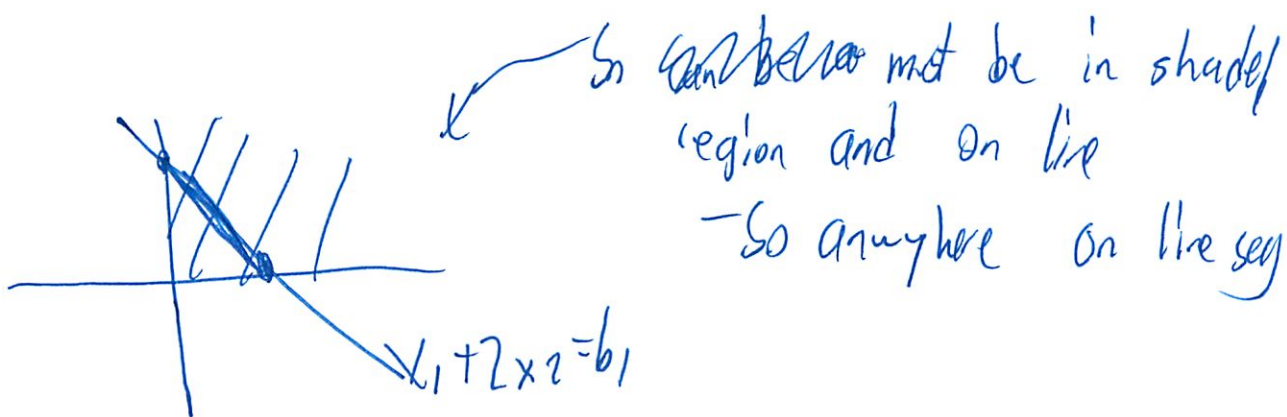 So must be in shaded
region and on line
- So anywhere on line seg
x₁ + 2x₂ = b₁